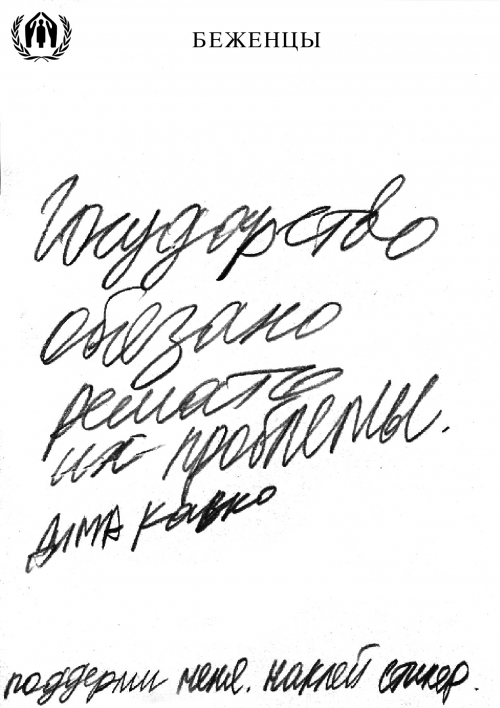 БЕЖЕНЦЫ
Государство
обязано
решать
их проблемы.
ДИМА Кавко
поддержи меня. наклей стикер.